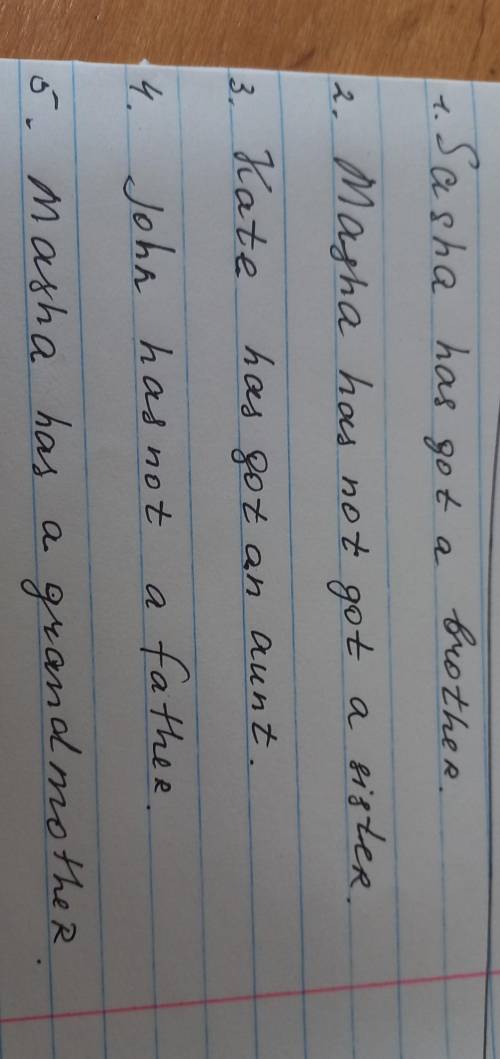 1. Sasha has got a brother.
2. Masha has not got a sister.
3. Kate has got an aunt.
4. John has not a father.
5. Masha has a grandmother.